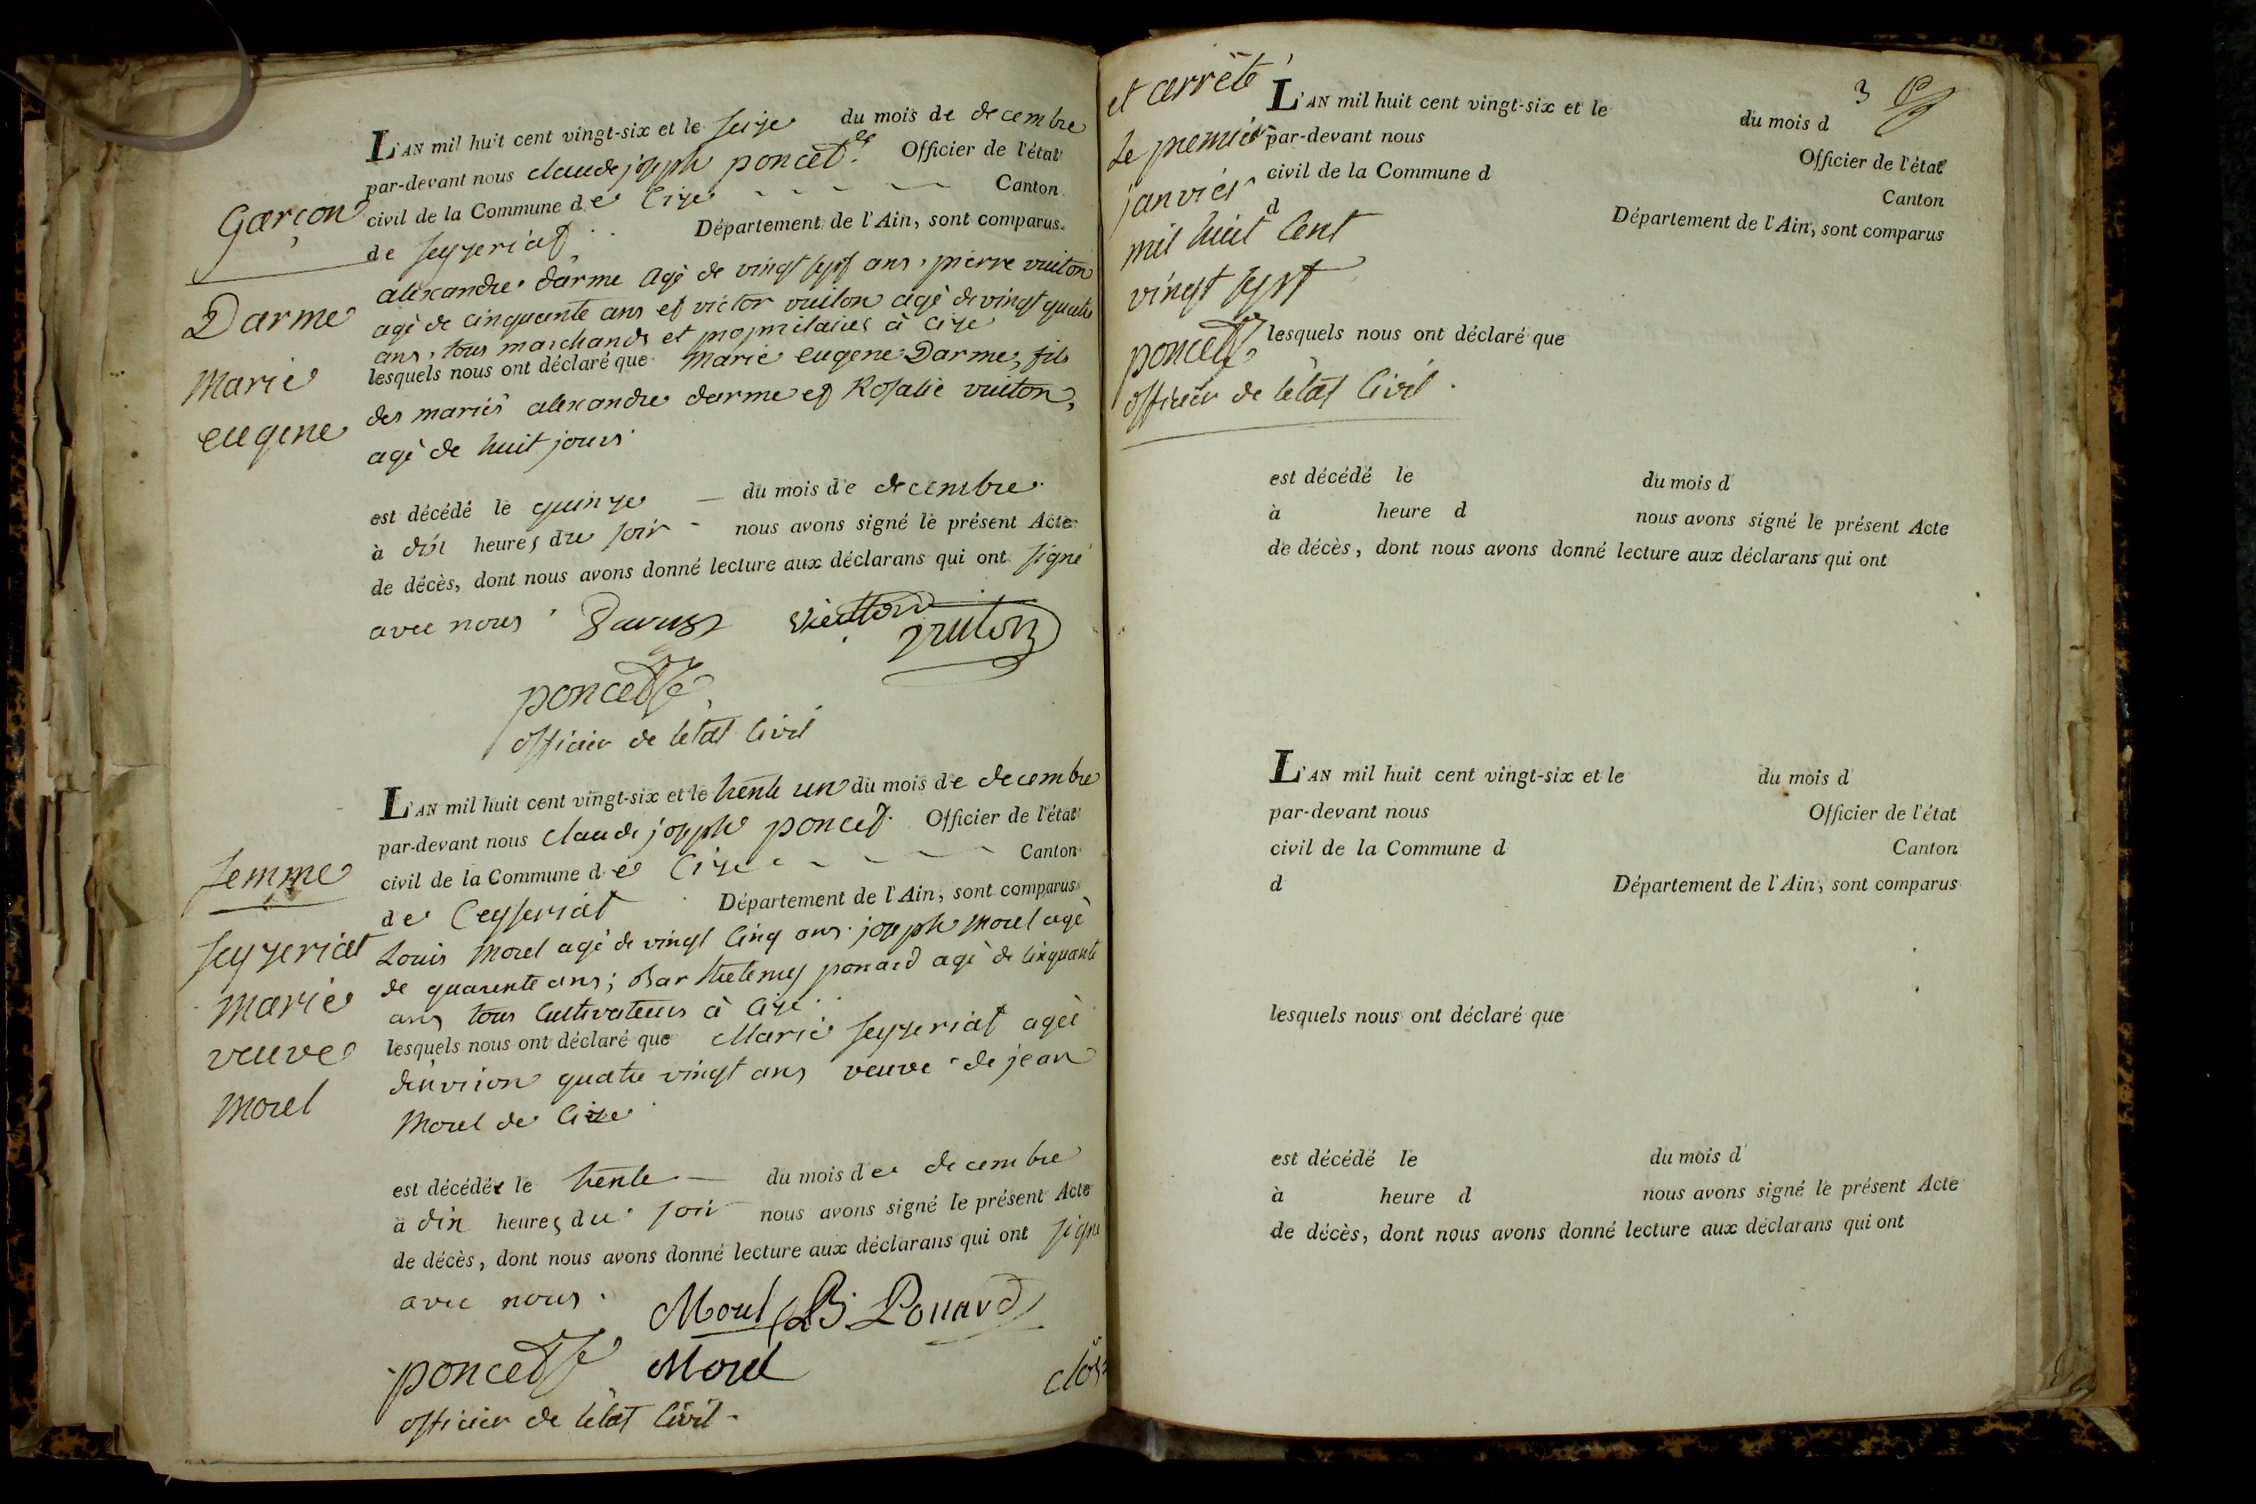 L'AN mil huit cent vingt-six et le seize du mois de decembre
par-devant nous claude joseph poncet Officier de l'état
civil de la Commune de Cize Canton
de seyzeriat Département de l'Ain, sont comparus
alexandre darme agé de vingt sept ans, pierre vuiton
agé de cinquante ans et victor vuiton agé de vingt quatre
ans, tous marchands et propriétaires à Cize
lesquels nous ont déclaré que marie eugene Darme, fils
des mariés alexandre darme et Rosalie vuiton,
agé de huit jours
est décédé le quinze du mois de decembre
à dix heures du soir nous avons signé le présent Acte
de décès, dont nous avons donné lecture aux déclarans qui ont signé
avec nous
vuiton
vuiton
poncet
officier de letat Civil
Garçon
Darme
Marie
eugene
L'AN mil huit cent vingt-six et le trente un du mois de decembre
par-devant nous claude joseph poncet Officier de l'état
civil de la Commune de Cize Canton
de Ceyseriat Département de l'Ain, sont comparus
Louis Morel agé de vingt cinq ans. joseph Morel agé
de quarente ans; Barthelemy ponard agé de cinquante
ans tous Cultivateurs à Cize
lesquels nous ont déclaré que Marie seyzeriat agée
d'environ quatre vingt ans veuve de jean
Morel de Cize
est décédée le trente du mois de decembre
à dix heures du soir nous avons signé le présent Acte
de décès, dont nous avons donné lecture aux déclarans qui ont signé
avec nous.
Morel B. Ponard
poncet Morel
officier de letat Civil
clos
femme
seyzeriat
marie
veuve
morel
et arrêté
Le premier
janvier
mil huit Cent
vingt sept
poncet
officier de letat Civil.
3
L'AN mil huit cent vingt-six et le du mois d
par-devant nous Officier de l'état
civil de la Commune d Canton
d Département de l'Ain, sont comparus
lesquels nous ont déclaré que
est décédé le du mois d
à heure d nous avons signé le présent Acte
de décès, dont nous avons donné lecture aux déclarans qui ont
L'AN mil huit cent vingt-six et le du mois d
par-devant nous Officier de l'état
civil de la Commune d Canton
d Département de l'Ain, sont comparus
lesquels nous ont déclaré que
est décédé le du mois d
à heure d nous avons signé le présent Acte
de décès, dont nous avons donné lecture aux déclarans qui ont